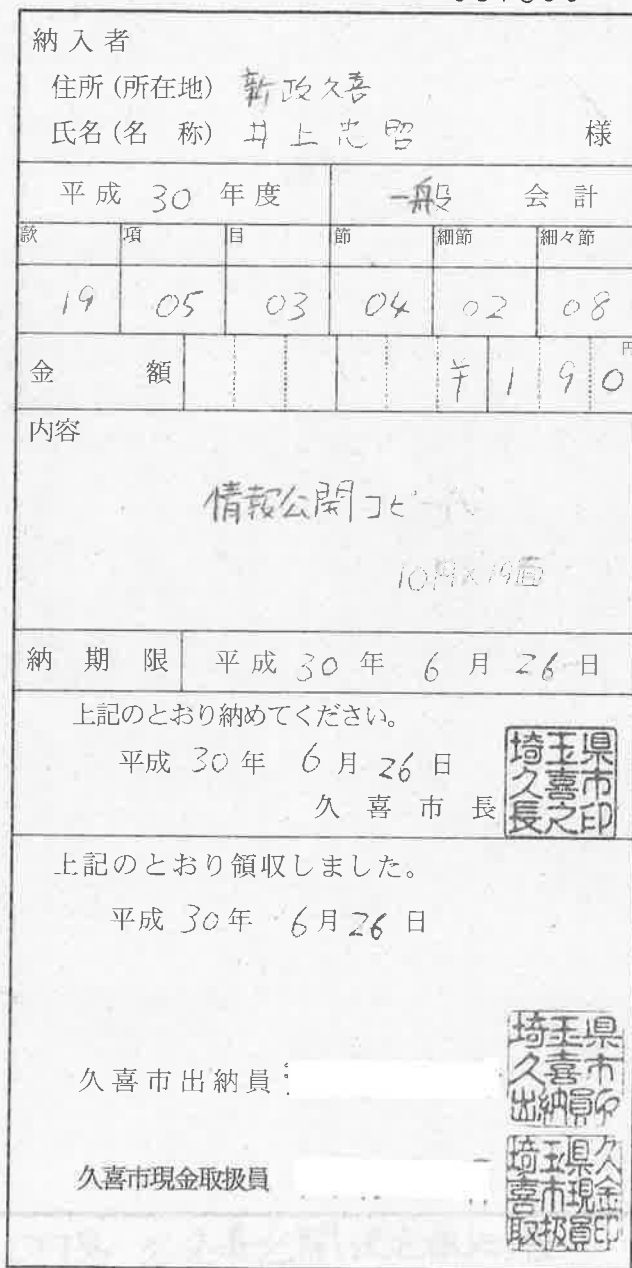 納入者
住所(所在地) 新政久喜
氏名(名 称) 井上忠昭 様
平成 30 年度 一般 会計
款 項 目 節 細節 細々節
19 05 03 04 02 08
金 額 ¥190円
内容
情報公開コピー代
10円×19面
納期限 平成 30 年 6 月 26 日
上記のとおり納めてください。
平成 30 年 6 月 26 日
久喜市長
埼玉県久喜市長之印
上記のとおり領収しました。
平成 30 年 6 月 26 日
久喜市出納員
埼玉県久喜市出納員印
久喜市現金取扱員
埼玉県久喜市現金取扱員印